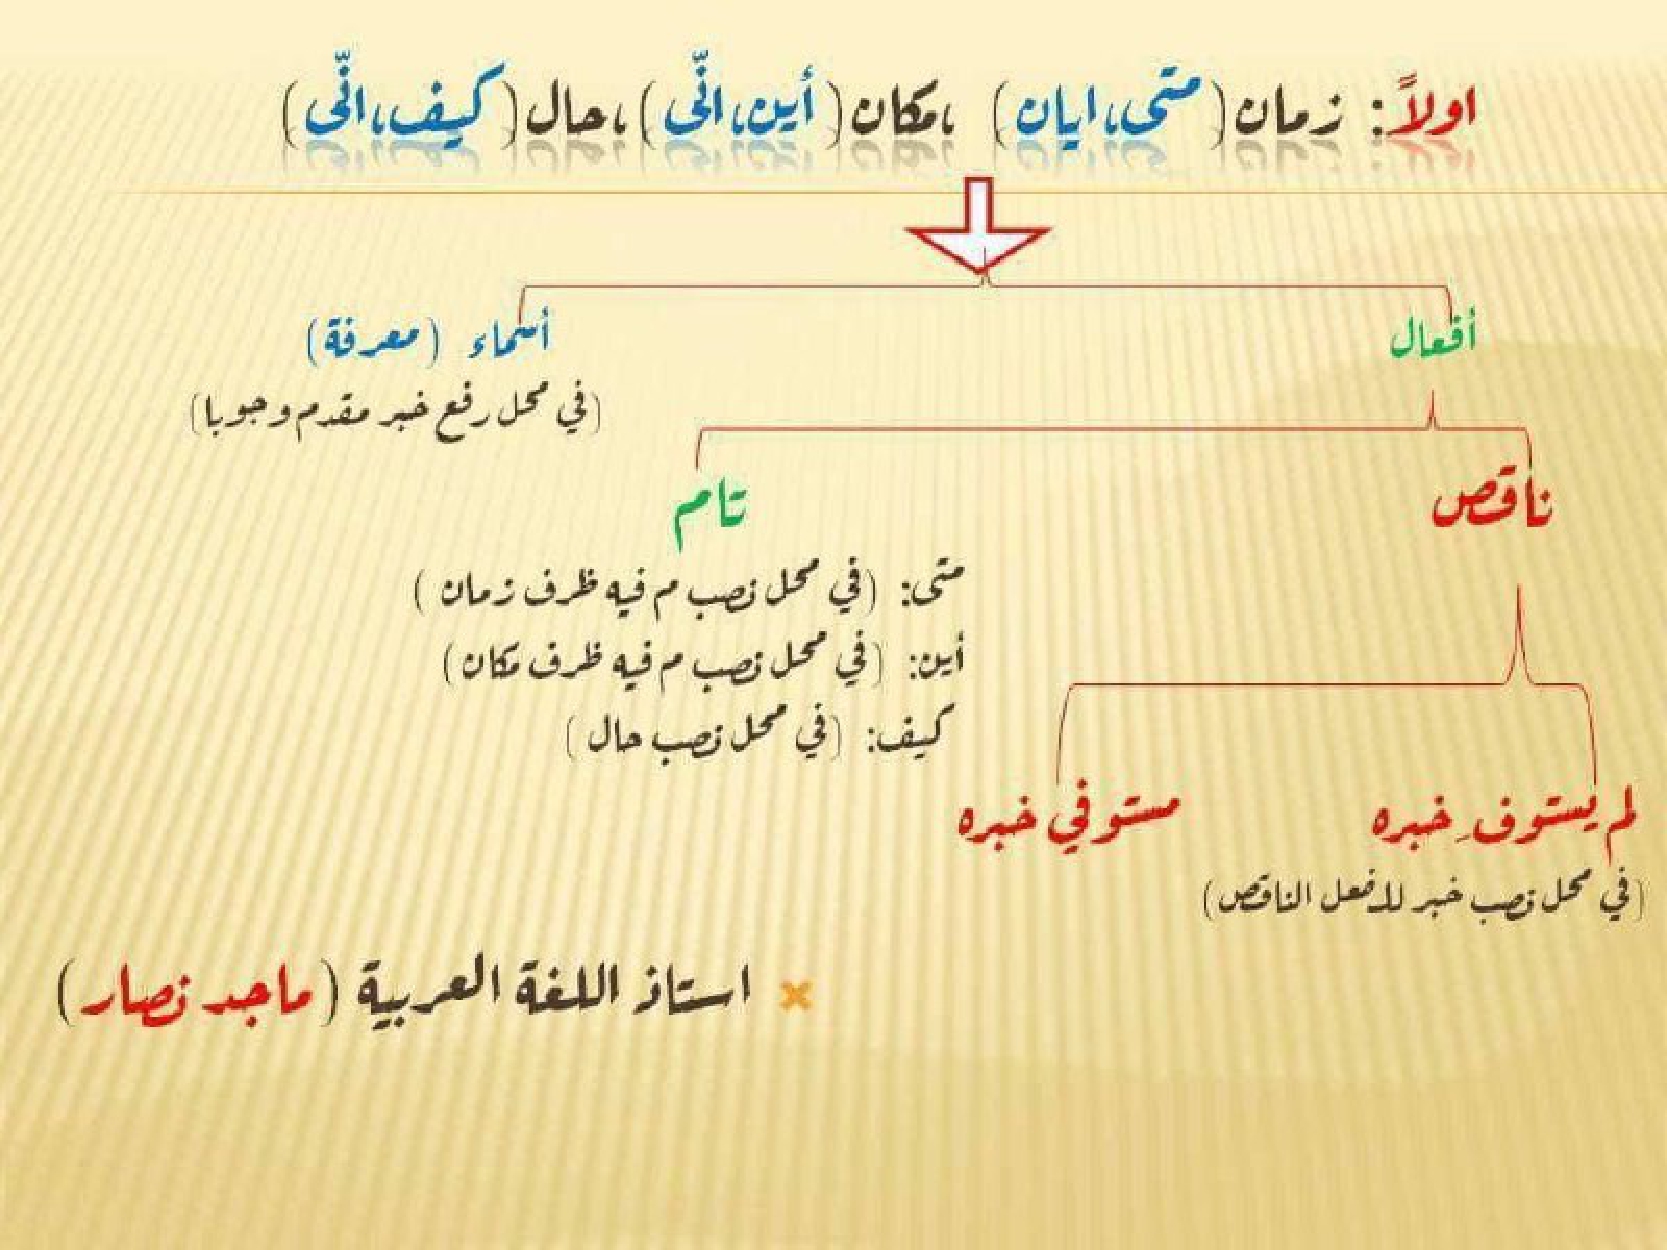 اولاً: زمان (متى،ايان) ،مكان (أين،انّى) ،حال (كيف،انّى)
أفعال
أسماء (معرفة)
(في محل رفع خبر مقدم وجوبا)
ناقص
تام
متى: (في محل نصب م فيه ظرف زمان)
أين: (في محل نصب م فيه ظرف مكان)
كيف: (في محل نصب حال)
لم يستوفِ خبره
مستوفي خبره
(في محل نصب خبر للفعل الناقص)
استاذ اللغة العربية (ماجد نصار)